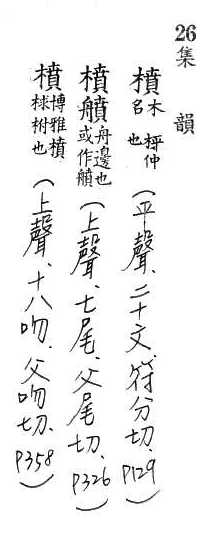 26集韻
橨木名枰仲也（平聲、二十文、符分切、P129）
橨䑶舟邊也或作䑶（上聲、七尾、父尾切、P326）
橨博雅橨梂柎也（上聲、十八吻、父吻切、P358）